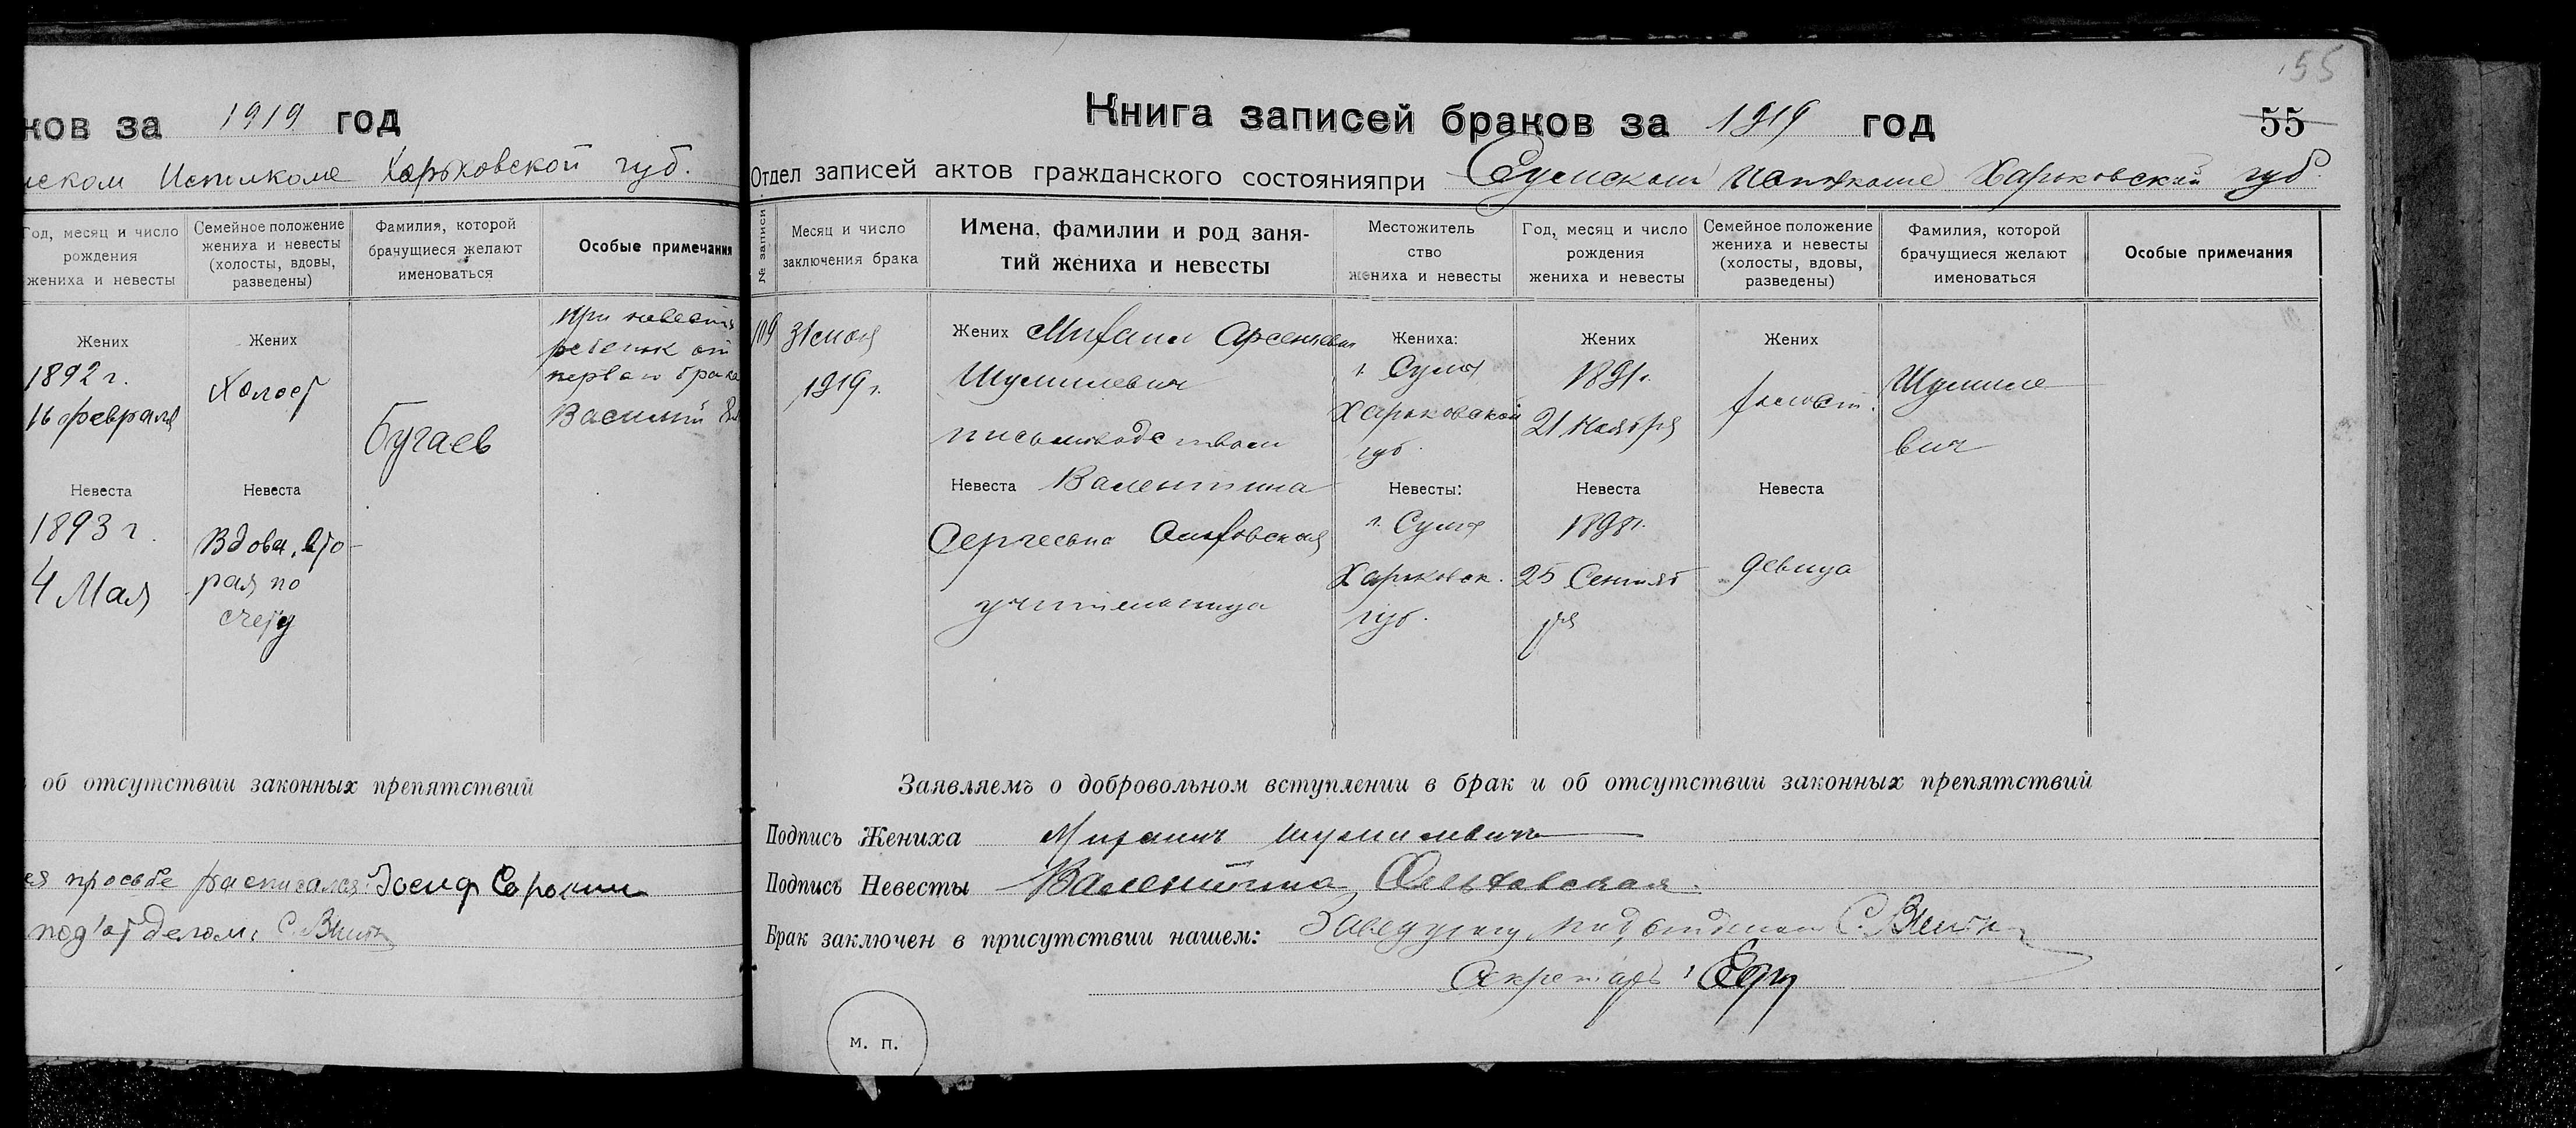 ков за 1919 год
ском Исполкоме Харьковской губ.
Год, месяц и число рождения жениха и невесты
Семейное положение жениха и невесты (холосты, вдовы, разведены)
Фамилия, которой брачущиеся желают именоваться
Особые примечания
Жених
1892 г.
16 февраля
Жених
Холост
Бугаев
При невесте
ребенок от
перваго брака
Василий
Невеста
1893 г.
4 Мая
Невеста
Вдова, вто-
рая по
счету
об отсутствии законных препятствий
ея просьбе расписался: Иосиф Сорокин
под'отделом:
55
Книга записей браков за 1919 год
55
Отдел записей актов гражданского состоянияпри Сумском Исполкоме Харьковской губ.
№ записи
Месяц и число заключения брака
Имена, фамилии и род заня-
тий жениха и невесты
Местожитель
ство
жениха и невесты
Год, месяц и число
рождения
жениха и невесты
Семейное положение
жениха и невесты
(холосты, вдовы,
разведены)
Фамилия, которой
брачущиеся желают
именоваться
Особые примечания
109
31 мая
1919 г.
Жених Михаил Арсеньевич
Шумилевич
письмоводитель
Невеста Валентина
Сергеевна Ольховская
учительница
Жениха:
г. Сумы
Харьковской
губ.
Невесты:
г. Сумы
Харьковск.
губ.
Жених
1891г.
21 Ноября
Невеста
1898г.
25 Сентяб
ря
Жених
холост.
Невеста
девица
Шумиле
вич
Заявляемъ о добровольном вступлении в брак и об отсутствии законных препятствий
Подпись Жениха Михаилъ Шумилевичъ
Подпись Невесты Валентина Ольховская.
Брак заключен в присутствии нашем: Заведующ. подотделом
Секретарь:
м. п.